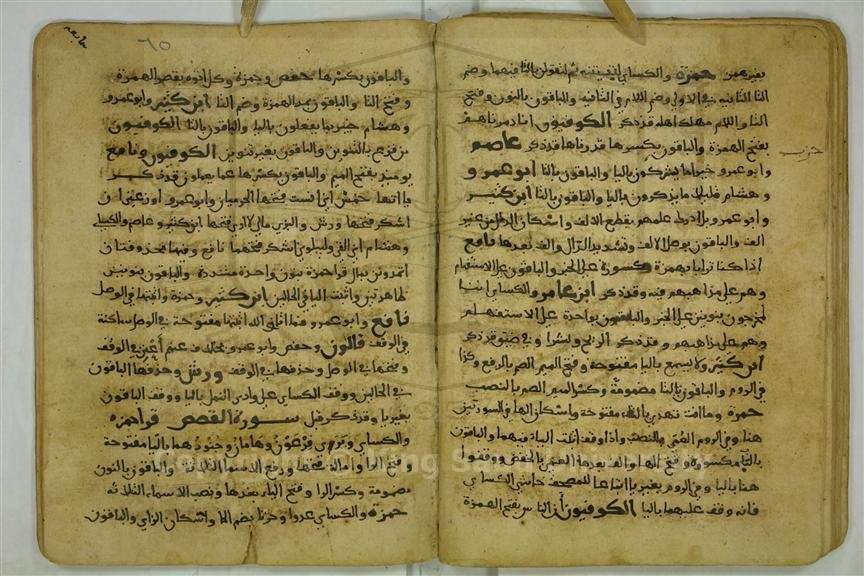 بغير همز حمزة والكسائي لتبيتنه ثم لتقولن بالتا فيهما وضم
التا الثانيه في الاولى وضم اللام في الثانيه والباقون بالنون وفتح
التا واللام مهلك اهله قد ذكر الكوفيون انا دمرناهم
بفتح الهمزة والباقون بكسرها قدرناها قد ذكر عاصم
وابو عمرو خير اما يشركون باليا والباقون بالتا ابو عمرو
وهشام قليلا ما يذكرون باليا والباقون بالتا ابن كثير
وابو عمرو بل ادرك علمهم بقطع الالف واسكان الدال من غير
الف والباقون بوصل الالف وتشديد الدال والف بعدها نافع
اذا كنا ترابا بهمزة مكسورة على الخبر والباقون على الاستفهام
وهم على مذاهبهم فيه وقد ذكر ابن عامر والكسائي اننا
لمخرجون بنونين على الخبر والباقون بواحدة على الاستفهام
وهم على مذاهبهم وقد ذكر الريح وبشرا وفي ضيق قد ذكر
ابن كثير ولا يسمع باليا مفتوحة وفتح الميم الصم بالرفع وكذا
في الروم والباقون بالتا مضمومة وكسر الميم الصم بالنصب
حمزة وما انت تهدي بالتا مفتوحة واسكان الها في السورتين
هنا وفي الروم العمي بالنصب واذا وقف اثبت اليا فيهما والباقون
بالبا مكسورة وفتح الها والف بعدها العمي بالخفض ووقفوا
هنا باليا وفي الروم بغير يا اتباعا للمصحف حاشى الكسائي
فانه وقف عليهما باليا الكوفيون ان الناس بفتح الهمزة
٦٥
والباقون بكسرها حفص وحمزة وكل اتوه بقصر الهمزة
وفتح التا والباقون بمد الهمزة وضم التا ابن كثير وابو عمرو
وهشام خبير بما يفعلون باليا والباقون بالتا الكوفيون
من فزع بالتنوين والباقون بغير تنوين الكوفيون ونافع
يومئذ بفتح الميم والباقون بكسرها عما يعملون قد ذكر
ياآتها خمس اني انست فتحها الحرميان وابو عمرو اوزعني ان
اشكر فتحها ورش والبزي مالي لا ارى فتحها ابن كثير وعاصم والكسائي
وهشام اني القي وليبلوني ااشكر فتحهما نافع وفيها محذوفتان
اتمدونن بمال قرا حمزة بنون واحدة مشددة والباقون بنونين
ظاهرتين واثبت اليا في الحالين ابن كثير وحمزة واثبتها في الوصل
نافع وابو عمرو فما اتاني الله اثبتها مفتوحة في الوصل ساكنة
في الوقف قالون وحفص وابو عمرو بخلاف عنهم اعني في الوقف
وفتحها في الوصل وحذفها في الوقف ورش وحذفها الباقون
في الحالين ووقف الكسائي على وادي النمل باليا ووقف الباقون
بغير يا وقد ذكر قبل سورة القصص قرا حمزه
والكسائي ويرى فرعون وهامان وجنودهما باليا مفتوحة
وفتح الرا وامالة فتحها ورفع الاسما الثلاثة والباقون بالنون
مضمومة وكسر الرا وفتح اليا بعدها ونصب الاسماء الثلاثه
حمزة والكسائي عدوا وحزنا بضم الحا واسكان الزاي والباقون